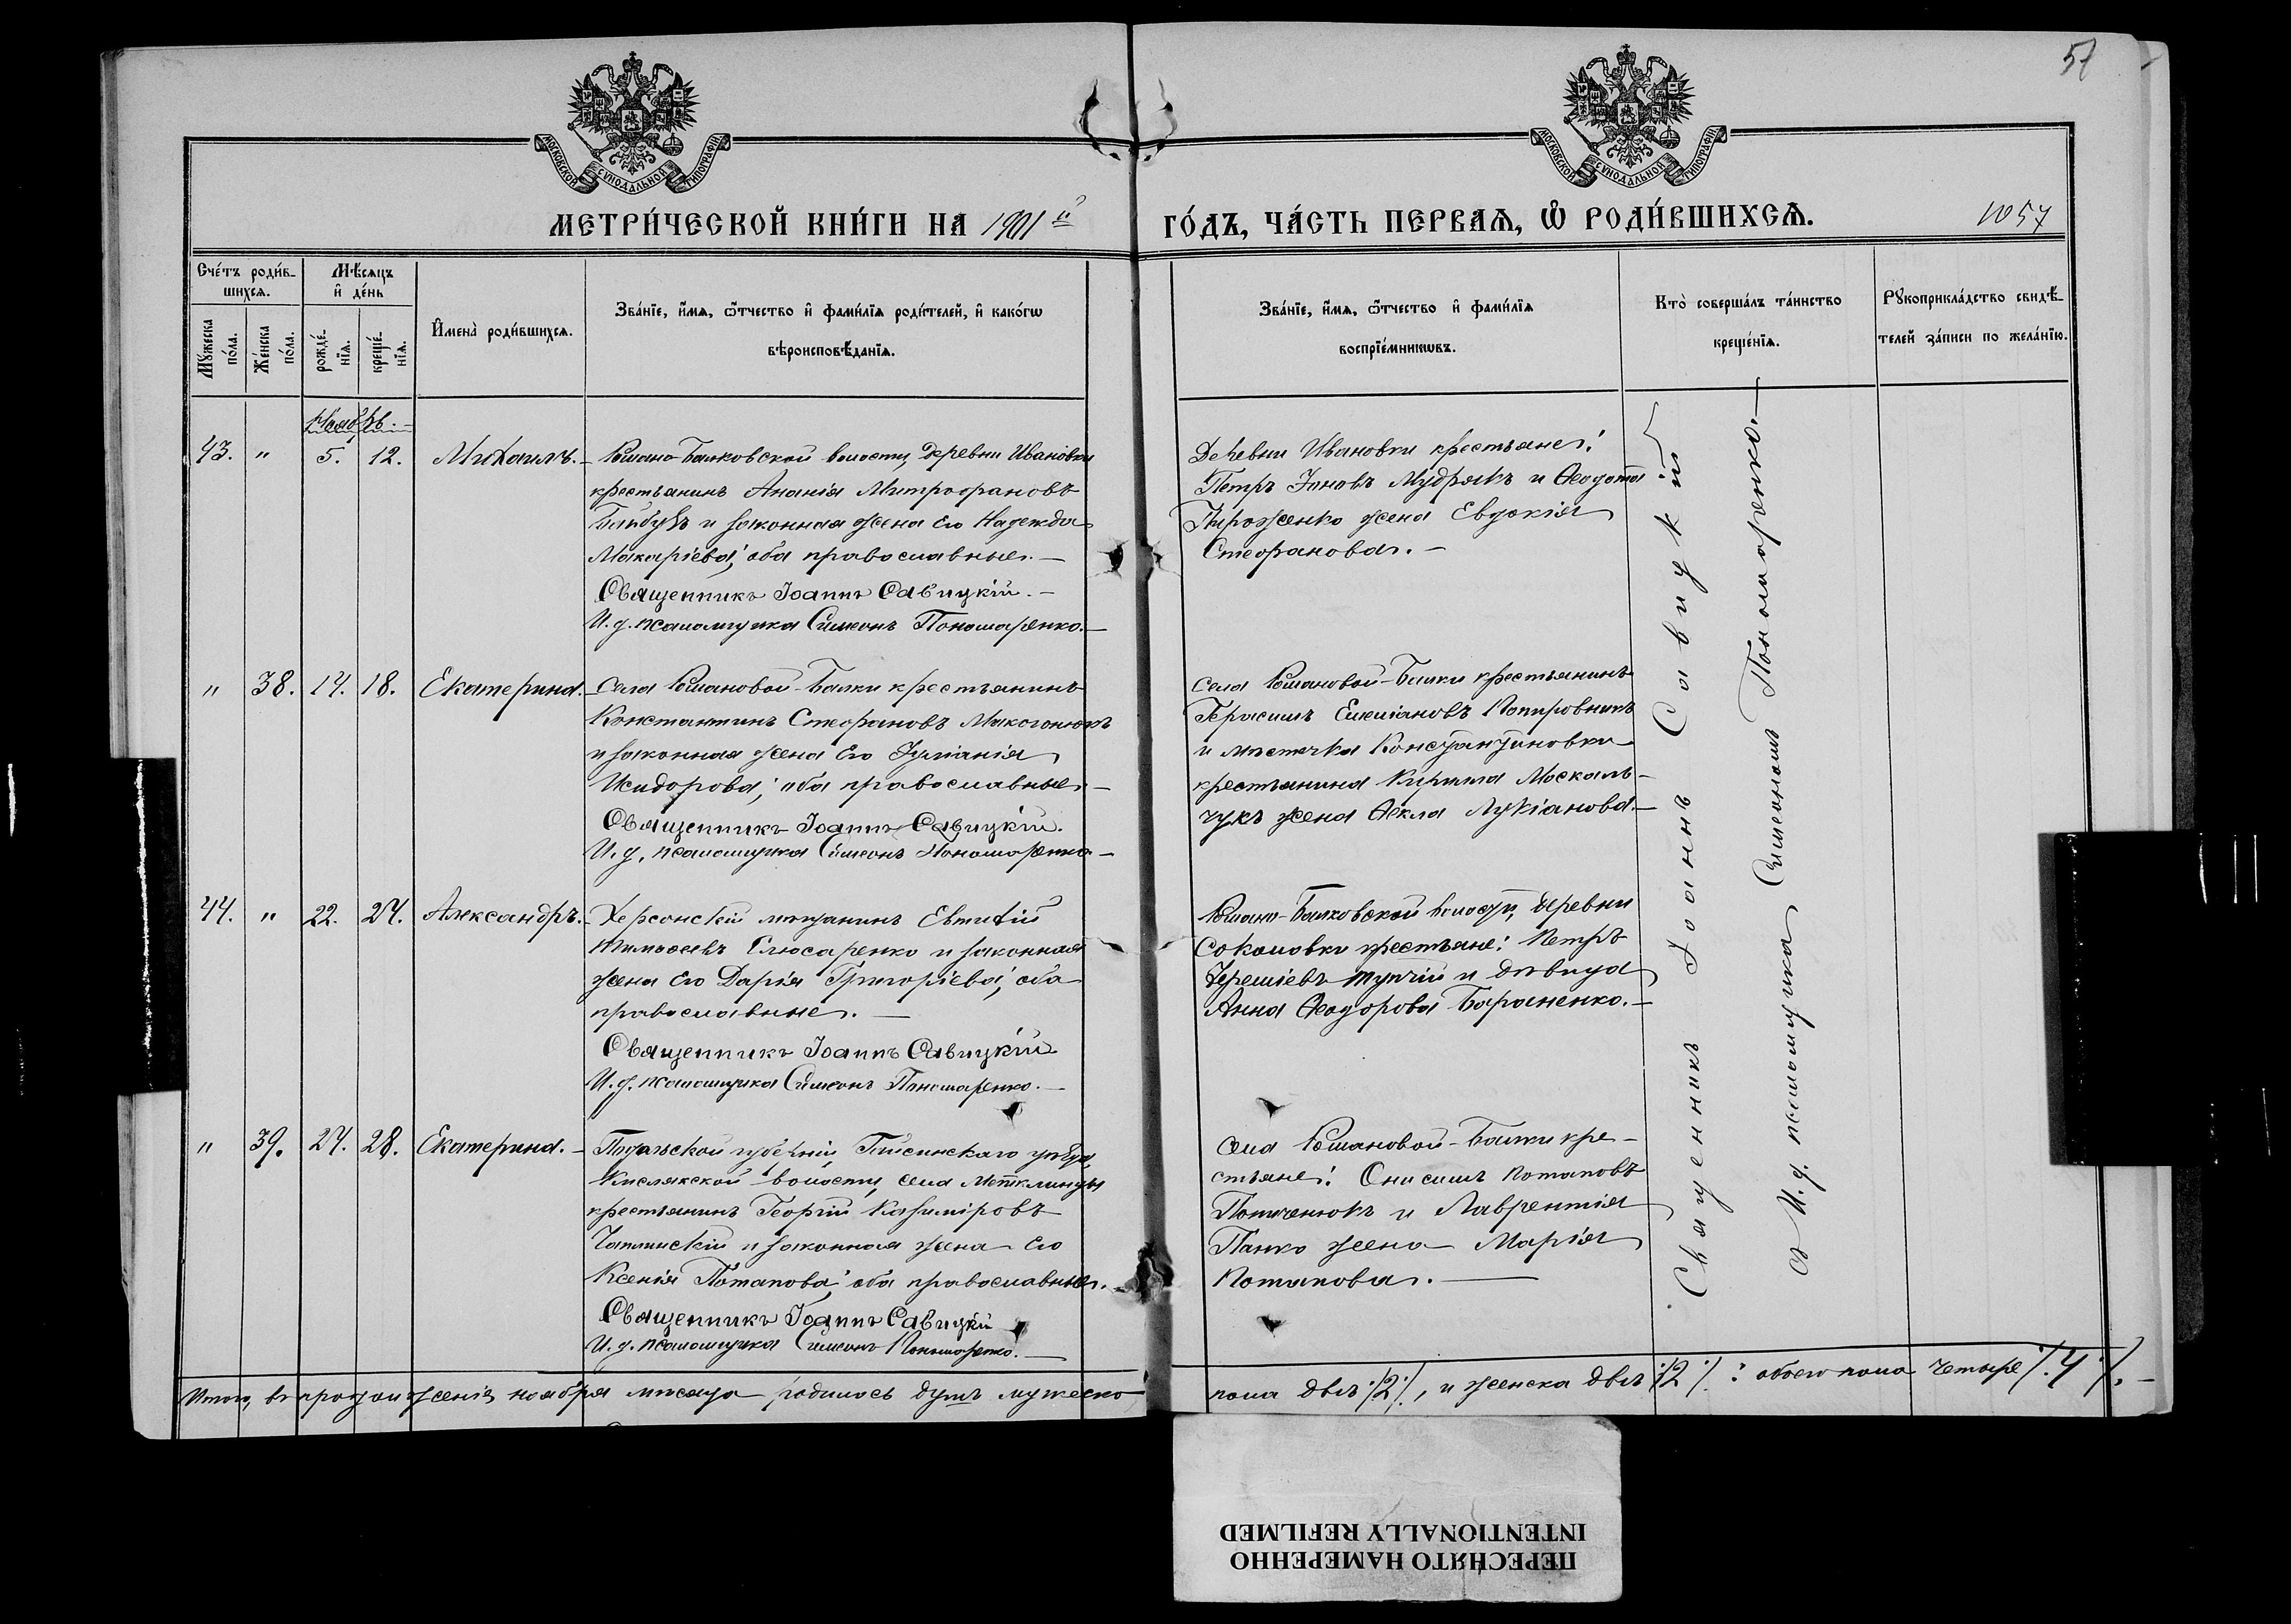 57
МОСКОВСКОЙ СУНОДАЛЬНОЙ ТИПОГРАФІИ.
МОСКОВСКОЙ СУНОДАЛЬНОЙ ТИПОГРАФІИ.
МЕТРИ́ЧЕСКОЙ КНИ́ГИ НА 1901й
ГО́ДЪ, ЧА́СТЬ ПЕРВАѦ, Ѡ҆ РОДИ́ВШИХСѦ.
1057
Сче́тъ роди́в-
шихсѧ.
Мѣ́сяцъ
и҆ де́нь
Мꙋ́жеска
по́ла.
Же́нска
по́ла.
рожде́-
нїѧ.
креще́-
нїѧ.
И҆мена̀ роди́вшихсѧ.
Зва́нїе, и҆́мѧ, ѻ҆́тчество и҆ фами́лїѧ роди́телей, и҆ како́гѡ
вѣроисповѣ́данїѧ.
Зва́нїе, и҆́мѧ, ѻ҆́тчество и҆ фами́лїѧ
воспрїе́мникѡвъ.
Кто̀ соверша́лъ та́инство
креще́нїѧ.
Рꙋкоприкла́дство свидѣ́-
телей за́писи по жела́нїю.
Ноябрь.
43. " 5. 12. Михаилъ.
Романо-Балковской волости, деревни Ивановки
крестьянинъ Ананія Митрофановъ
и законная жена его Надежда
Макаріева; оба православные.
Священникъ Іоаннъ Савицкій.
И. д. псаломщика Симеонъ Пономаренко.
Деревни Ивановки крестьяне:
Петръ Іоновъ Мудрякъ и Ѳеодота
Пироженко жена Евдокія
Стефанова.
" 38. 14. 18. Екатерина.
Села Романовой-Балки крестьянинъ
Константинъ Стефановъ Макогонюкъ
и законная жена его Іуліанія
Исидорова; оба православные.
Священникъ Іоаннъ Савицкій.
И. д. псаломщика Симеонъ Пономаренко.
Села Романовой-Балки крестьянинъ
Герасимъ Емиліановъ
и мѣстечка Константиновки
крестьянина Кирилла Москаль-
чукъ жена Ѳекла Лукіанова.
44. " 22. 24. Александръ.
Херсонскій мѣщанинъ Евтихій
Слюсаренко и законная
жена его Дарія Григоріева; оба
православные.
Священникъ Іоаннъ Савицкій
И. д. псаломщика Симеонъ Пономаренко.
Романо-Балковской волости, деревни
Соколовки крестьяне: Петръ
Іереміевъ Тупчій и дѣвица
Анна Ѳеодорова Бараненко.
" 39. 24. 28. Екатерина.
Подольской губерніи, Гайсинскаго уѣзда,
Кислякской волости, села
крестьянинъ Георгій Казиміровъ
Чаплинскій и законная жена его
Ксенія Потапова; оба православные.
Священникъ Іоаннъ Савицкій
И. д. псаломщика Симеонъ Пономаренко.
Села Романовой-Балки кре-
стьяне: Онисимъ Потаповъ
и Лаврентія
Панко жена Марія
Потапова.
Священникъ Іоаннъ Савицкій
съ И. д. псаломщика Симеономъ Пономаренко.
Итого, въ продолженіи ноября мѣсяца родилось душъ мужеско
пола двѣ ./2/., и женска двѣ ./2/.: обоего пола четыре ./4/.
ПЕРЕСНЯТО НАМЕРЕННО
INTENTIONALLY REFILMED